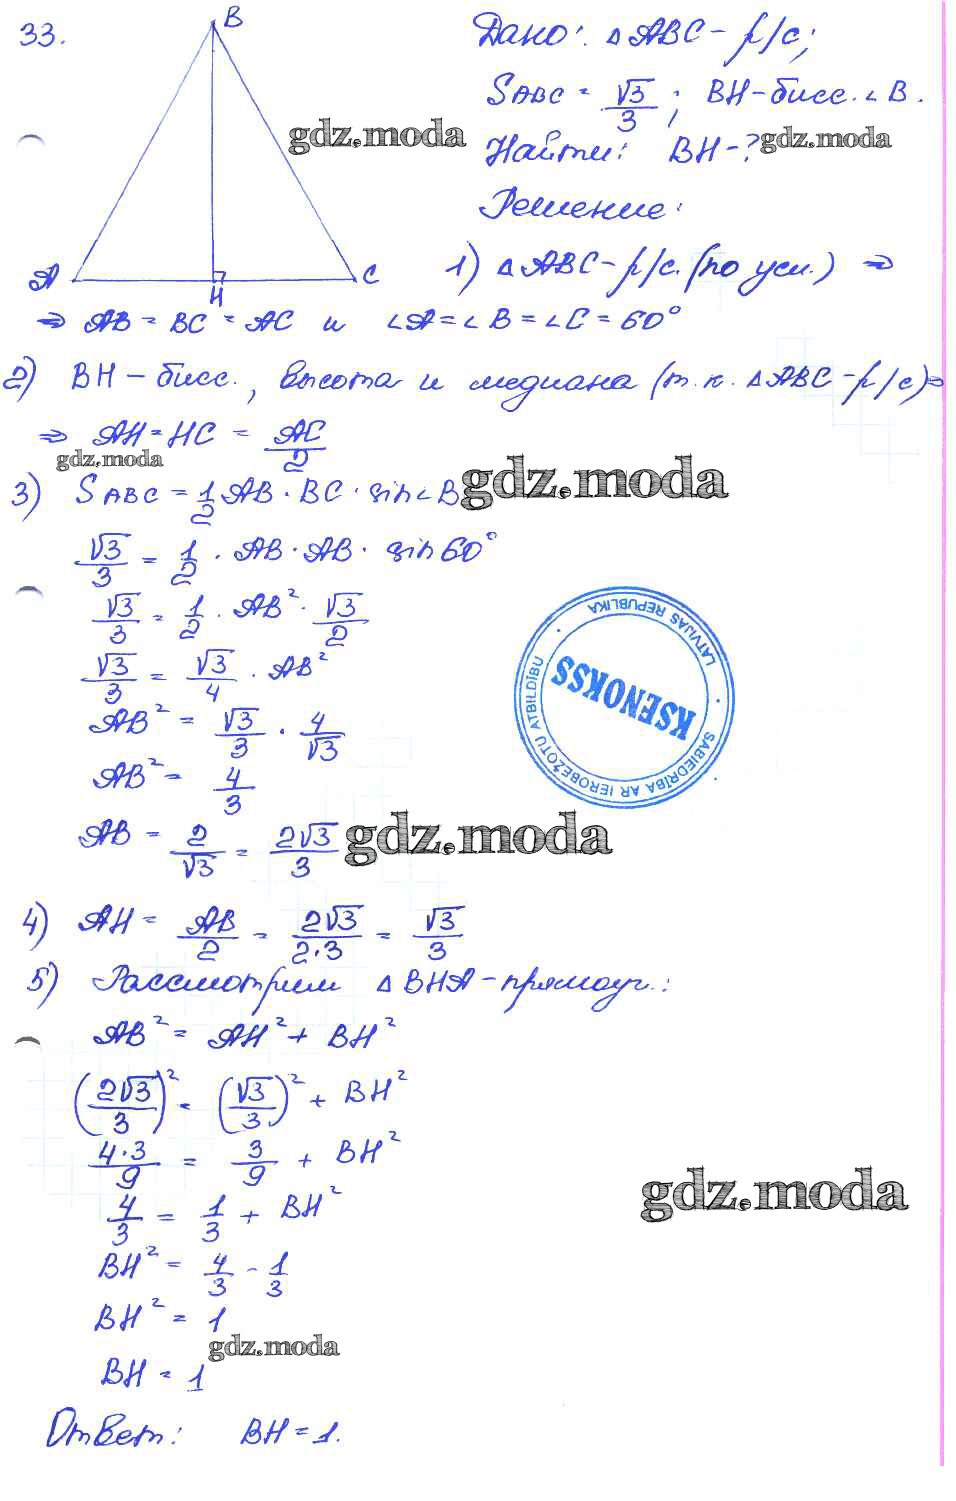 33.
B
A
H
C
Дано: △ABC – р/с;
S ABC = √3/3; BH – бисс. ∠B.
Найти: BH – ?
Решение:
1) △ABC – р/с. (по усл.) ⇒
⇒ AB = BC = AC и ∠A = ∠B = ∠C = 60°
2) BH – бисс., высота и медиана (т.к. △ABC – р/с) ⇒
⇒ AH = HC = AC/2
3) S ABC = 1/2 AB · BC · sin∠B
√3/3 = 1/2 · AB · AB · sin 60°
√3/3 = 1/2 · AB² · √3/2
√3/3 = √3/4 · AB²
AB² = √3/3 · 4/√3
AB² = 4/3
AB = 2/√3 = 2√3/3
4) AH = AB/2 = 2√3/2·3 = √3/3
5) Рассмотрим △BHA – прямоуг.:
AB² = AH² + BH²
(2√3/3)² = (√3/3)² + BH²
4·3/9 = 3/9 + BH²
4/3 = 1/3 + BH²
BH² = 4/3 - 1/3
BH² = 1
BH = 1
Ответ: BH = 1.
gdz.moda
gdz.moda
gdz.moda
gdz.moda
gdz.moda
gdz.moda
gdz.moda
LATVIJAS REPUBLIKA
KSENOKSS
SABIEDRĪBA AR IEROBEŽOTU ATBILDĪBU